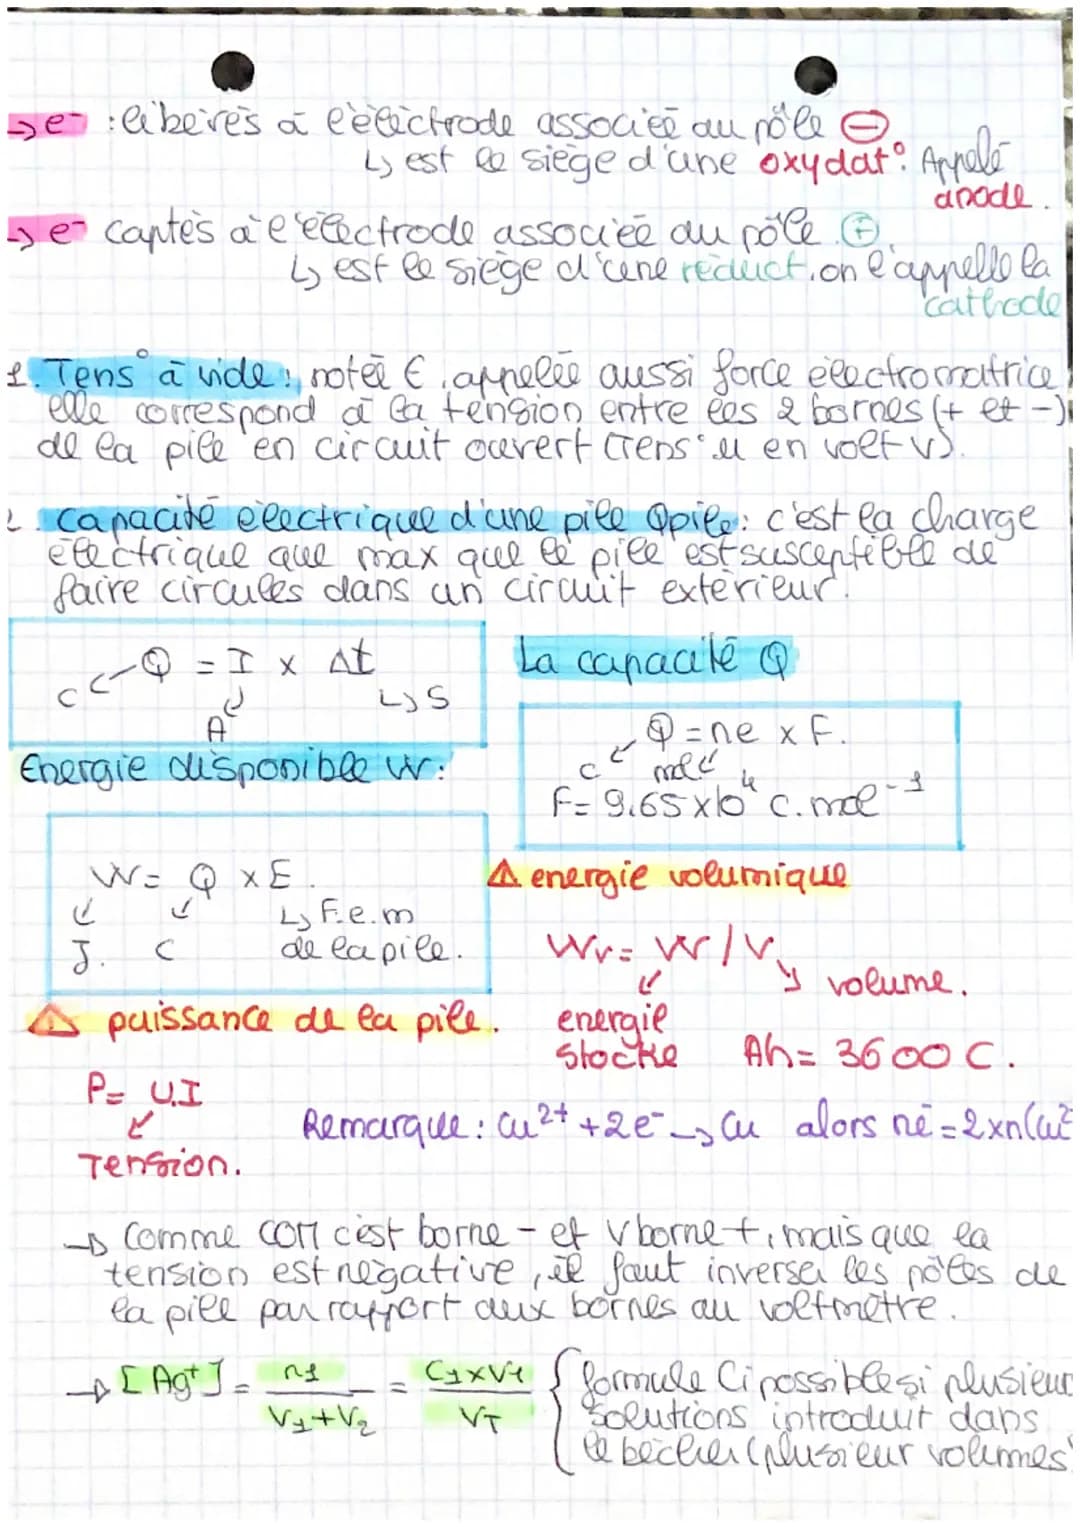 → e⁻ : libérés à l'électrode associée au pôle ⊖
↳ est le siège d'une oxydat°. Appelé
anode.
→ e⁻ captés à l'électrode associée au pôle ⊕
↳ est le siège d'une réduct, on l'appelle la
cathode
1. Tens° à vide : notée E, appelée aussi force électromotrice
elle correspond à la tension entre les 2 bornes (+ et -)
de la pile en circuit ouvert (Tens° u en volt V).
2. capacité électrique d'une pile Qpile : c'est la charge
électrique que max que le pile est susceptible de
faire circules dans un circuit extérieur.
Q = I x Δt
C A ↳ S
La capacité Q
Q = ne x F.
C mol
F = 9,65 x 10⁴ C.mol⁻¹
Energie disponible W :
W = Q x E.
↳ F.e.m
J. C de la pile.
⚠ energie volumique
Wv = W / V
volume.
energie
stocke Ah = 3600 C.
⚠ puissance de la pile.
P = U.I
Tension.
Remarque : Cu²⁺ + 2e⁻ → Cu alors né = 2xn(Cu²
→ Comme COM c'est borne - et V borne +, mais que la
tension est négative, il faut inverser les pôles de
la pile par rapport aux bornes au voltmètre.
→ [Ag⁺] = n1 / V1+V2 = C1xV1 / VT
{ formule Ci possible si plusieur
solutions introduit dans
le bécher (plusieur volumes